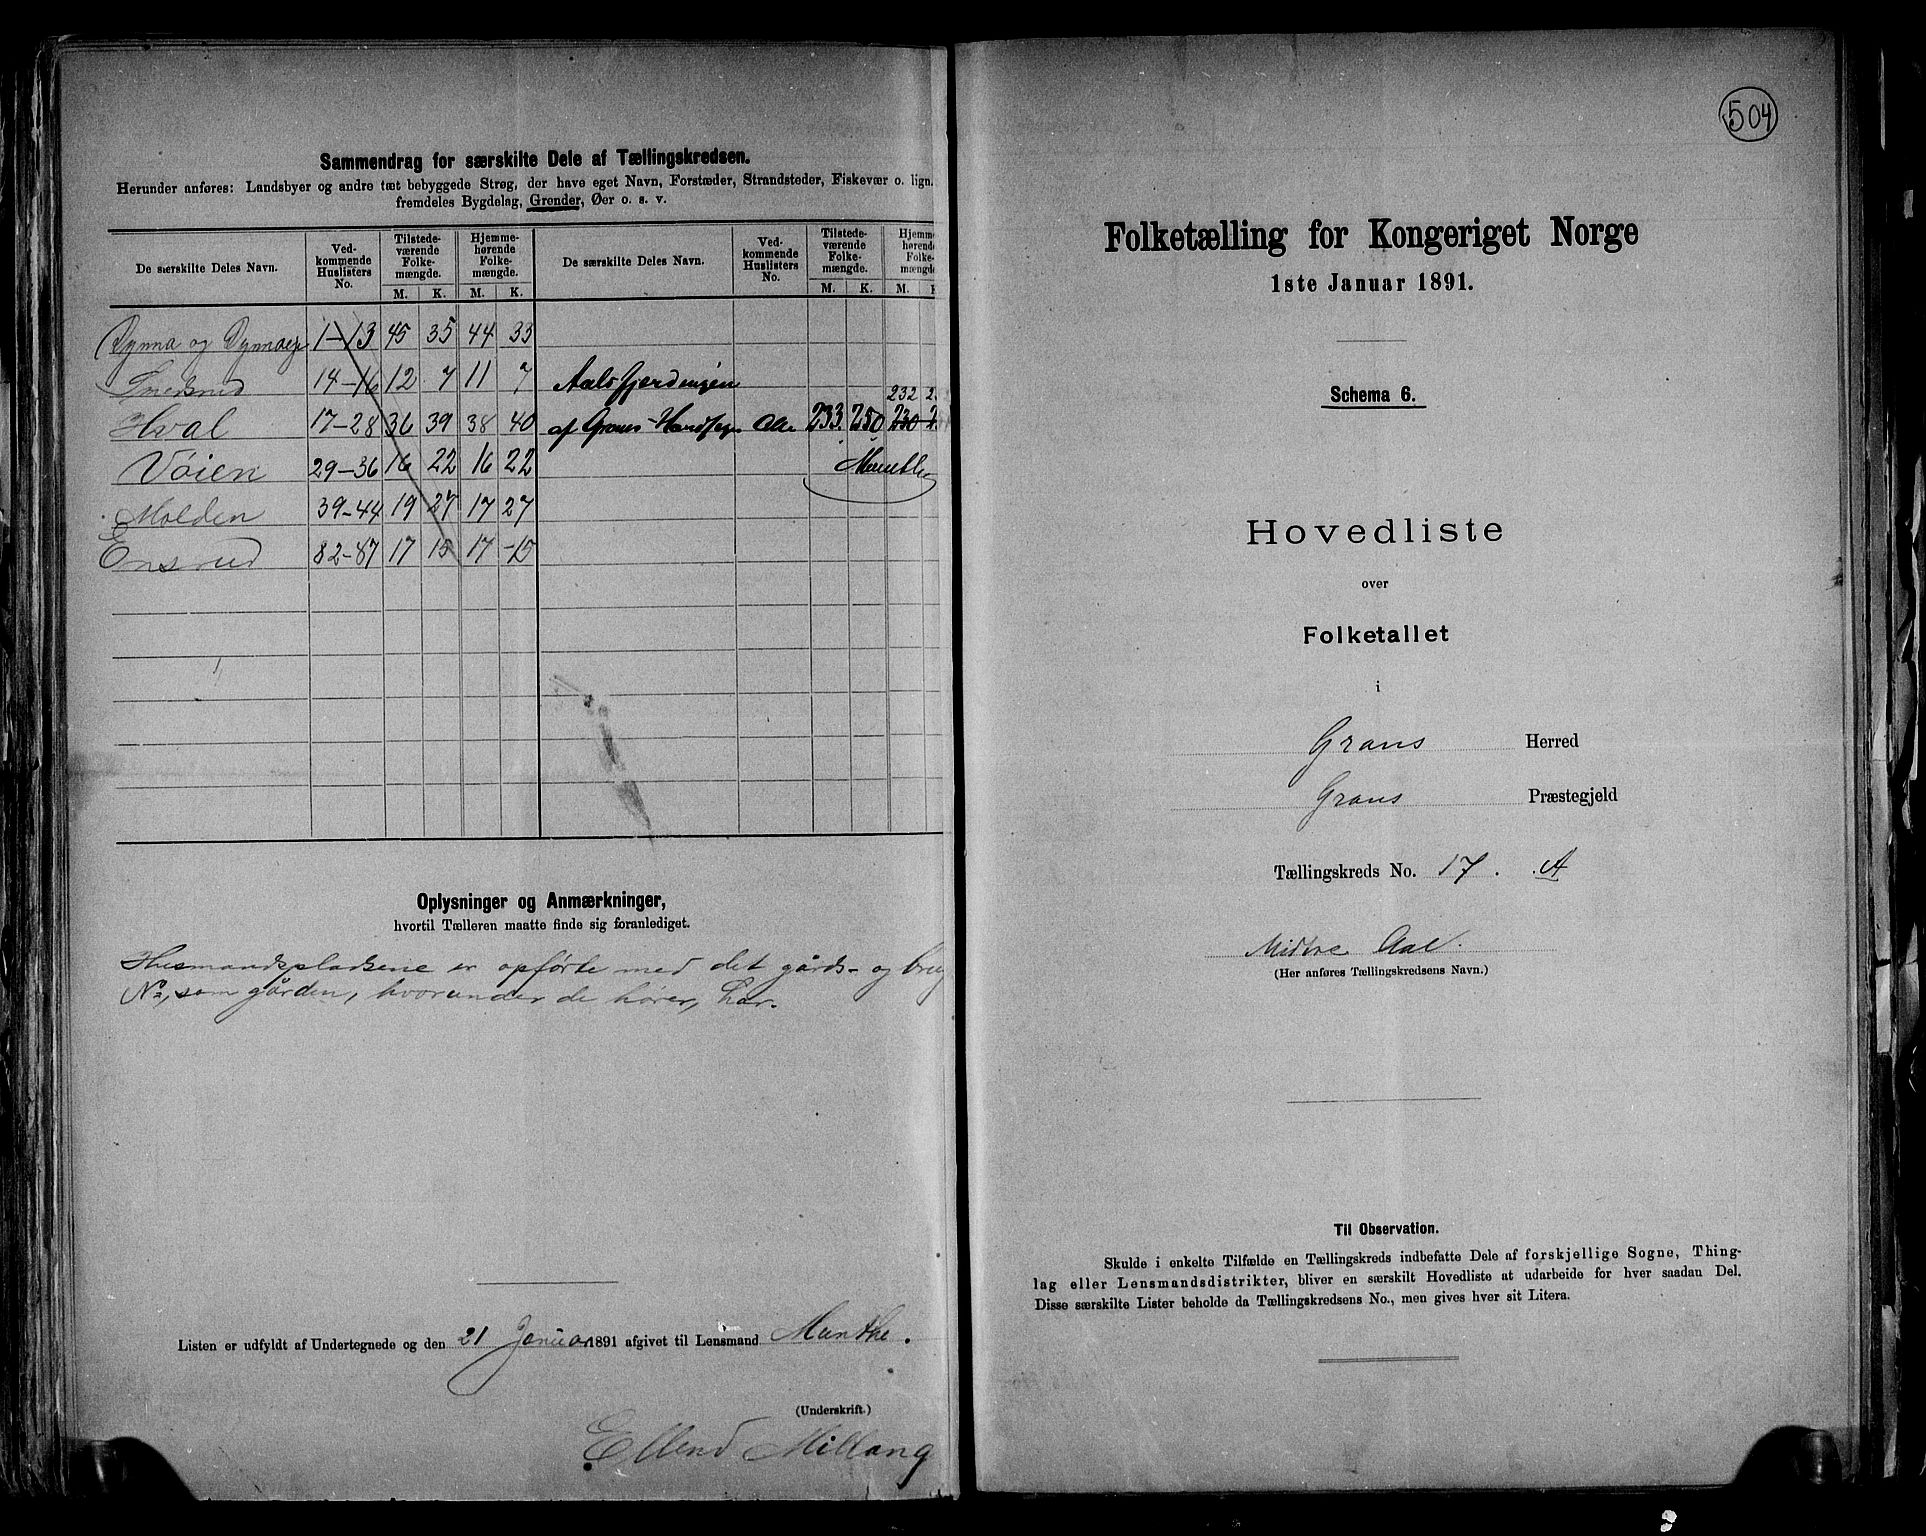 Sammendrag for særskilte Dele af Tællingskredsen.
Herunder anføres: Landsbyer og andre tæt bebyggede Strøg, der have eget Navn, Forstæder, Strandsteder, Fiskevær o. lign.
fremdeles Bygdelag, Grender, Øer o. s. v.
De særskilte Deles Navn. Ved-kommende Huslisters No. Tilstede-værende Folke-mængde. Hjemme-hørende Folke-mængde. De særskilte Deles Navn. Ved-kommende Huslisters No. Tilstede-værende Folke-mængde. Hjemme-hørende Folke-mængde.
M. K. M. K. M. K. M. K
Dynna og 1-13 45 35 44 33
14-16 12 7 11 7 Aalsfjerdingen
232
Hval 17-28 36 39 38 40 af Grans Alle 233 250 230
Vøien 29-36 16 22 16 22 Munthe
Molden 39-44 19 27 17 27
Ensrud 82-87 17 15 17 15
Oplysninger og Anmærkninger,
hvortil Tælleren maatte finde sig foranlediget.
Husmandspladsene er opførte med det gårds- og brug
No, som gården, hvorunder de hører, har.
Listen er udfyldt af Undertegnede og den 21 Januar 1891 afgivet til Lensmand Munthe.
(Underskrift.)
Ellend Millang
504
Folketælling for Kongeriget Norge
1ste Januar 1891.
Schema 6.
Hovedliste
over
Folketallet
i
Grans Herred
Grans Præstegjeld
Tællingskreds No. 17. A
Midtre Aal.
(Her anføres Tællingskredsens Navn.)
Til Observation.
Skulde i enkelte Tilfælde en Tællingskreds indbefatte Dele af forskjellige Sogne, Thing-
lag eller Lensmandsdistrikter, bliver en særskilt Hovedliste at udarbeide for hver saadan Del.
Disse særskilte Lister beholde da Tællingskredsens No., men gives hver sit Litera.